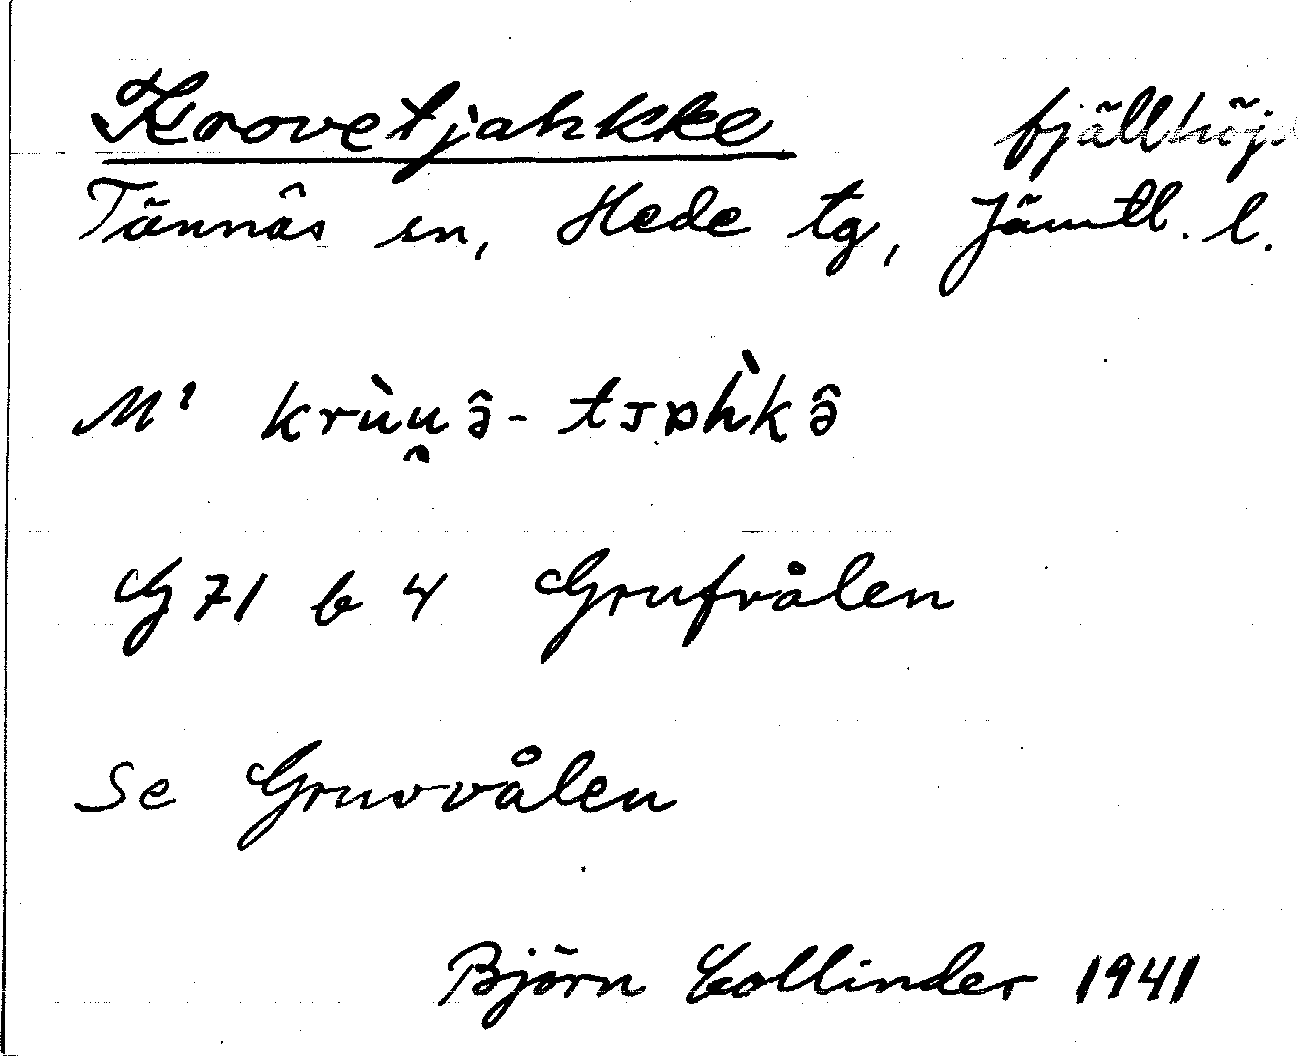 Krovetjahkke fjällhöjd
Tännäs sn, Hede tg, Jämtl. l.
M¹ krùu̯ə̑- tsɒh̀kə̑
G 71 b 4 Grufvålen
Se Gruvvålen
Björn Collinder 1941